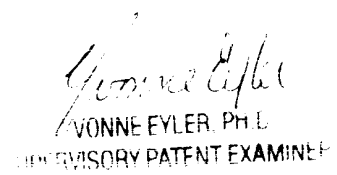 Yvonne Eyler
YVONNE EYLER, PH.D
SUPERVISORY PATENT EXAMINER